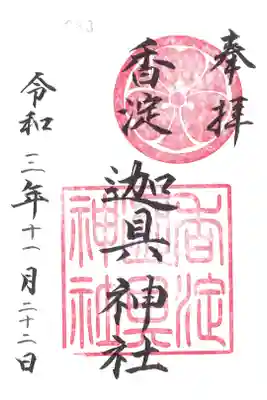 奉拝
香淀
迦具神社
香淀迦具神社
令和三年十一月二十二日